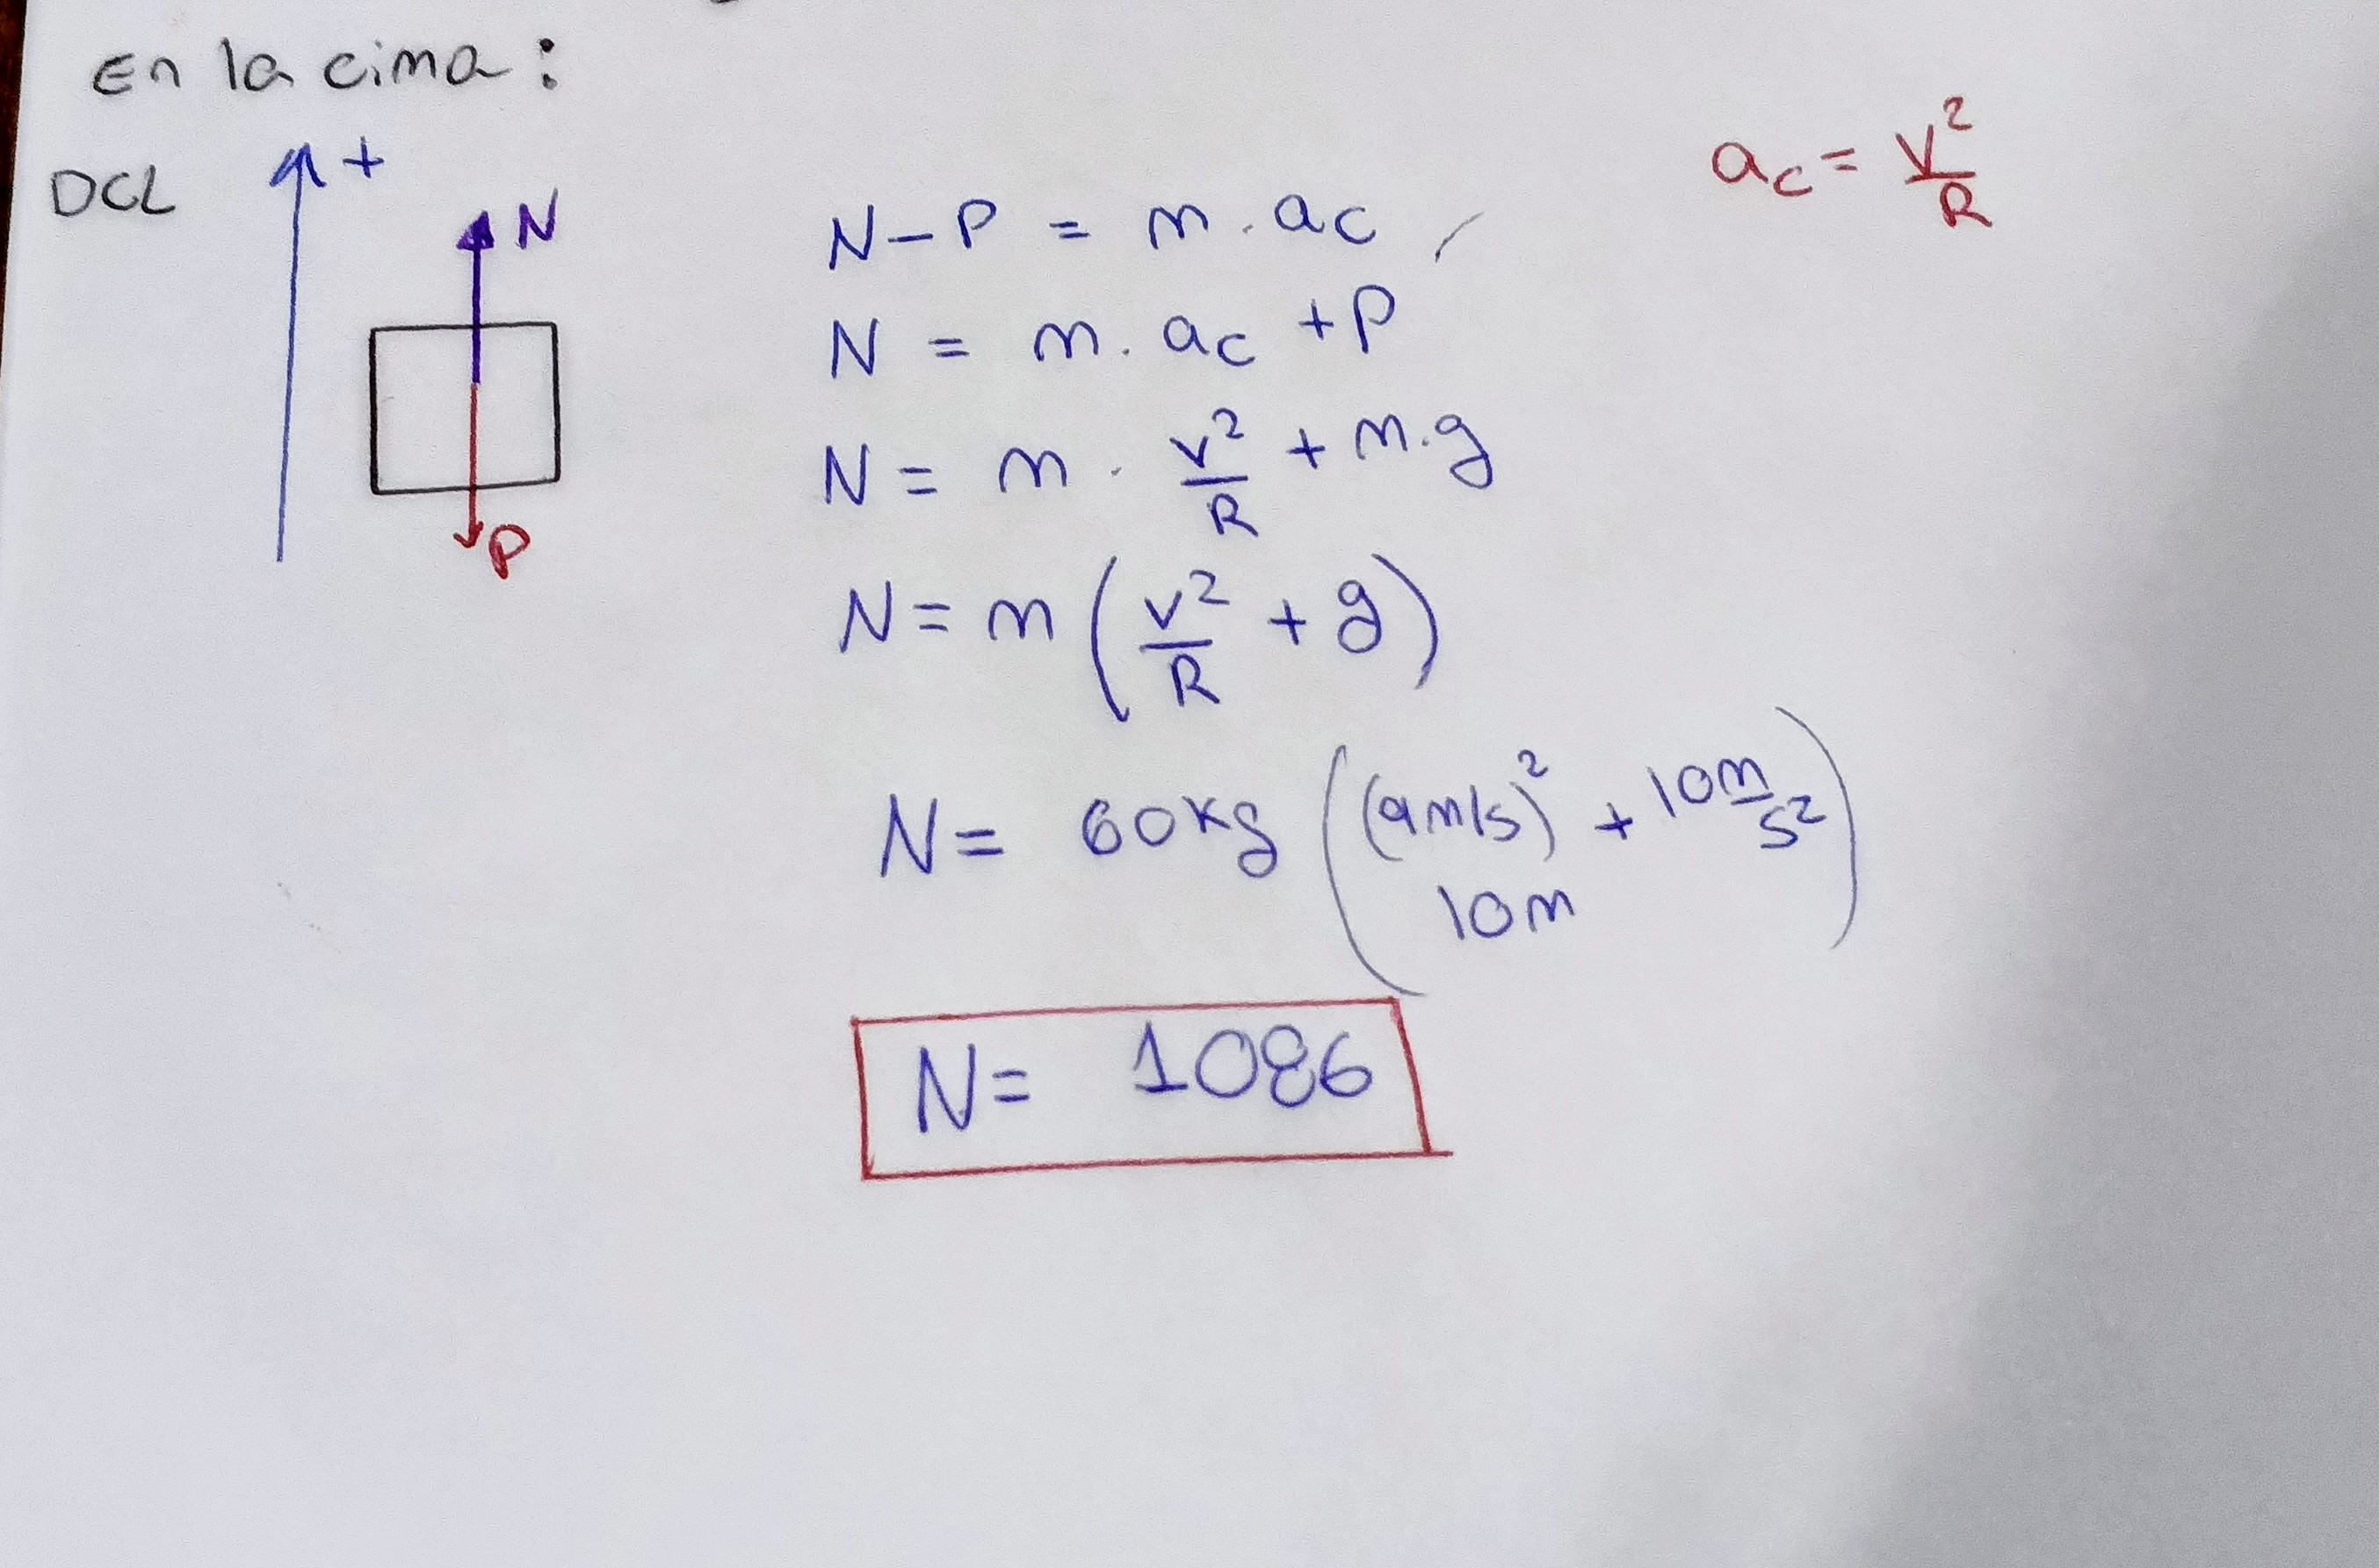 En la cima:
DCL
+
N
P
a_c = v²/R
N - P = m . a_c
N = m . a_c + P
N = m . v²/R + m.g
N = m (v²/R + g)
N = 60kg ((9m/s)² 10m + 10m/s²)
N = 1086